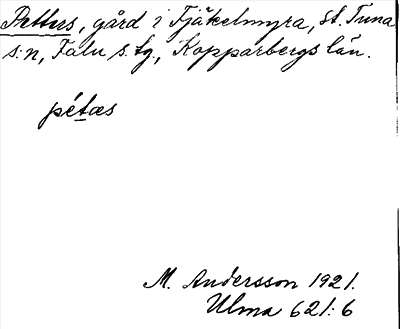 Petters, gård i Fjäkelmyra, St. Tuna
s:n, Falu s. tg., Kopparbergs län.
pétæs
M. Andersson 1921.
Ulma 621:6